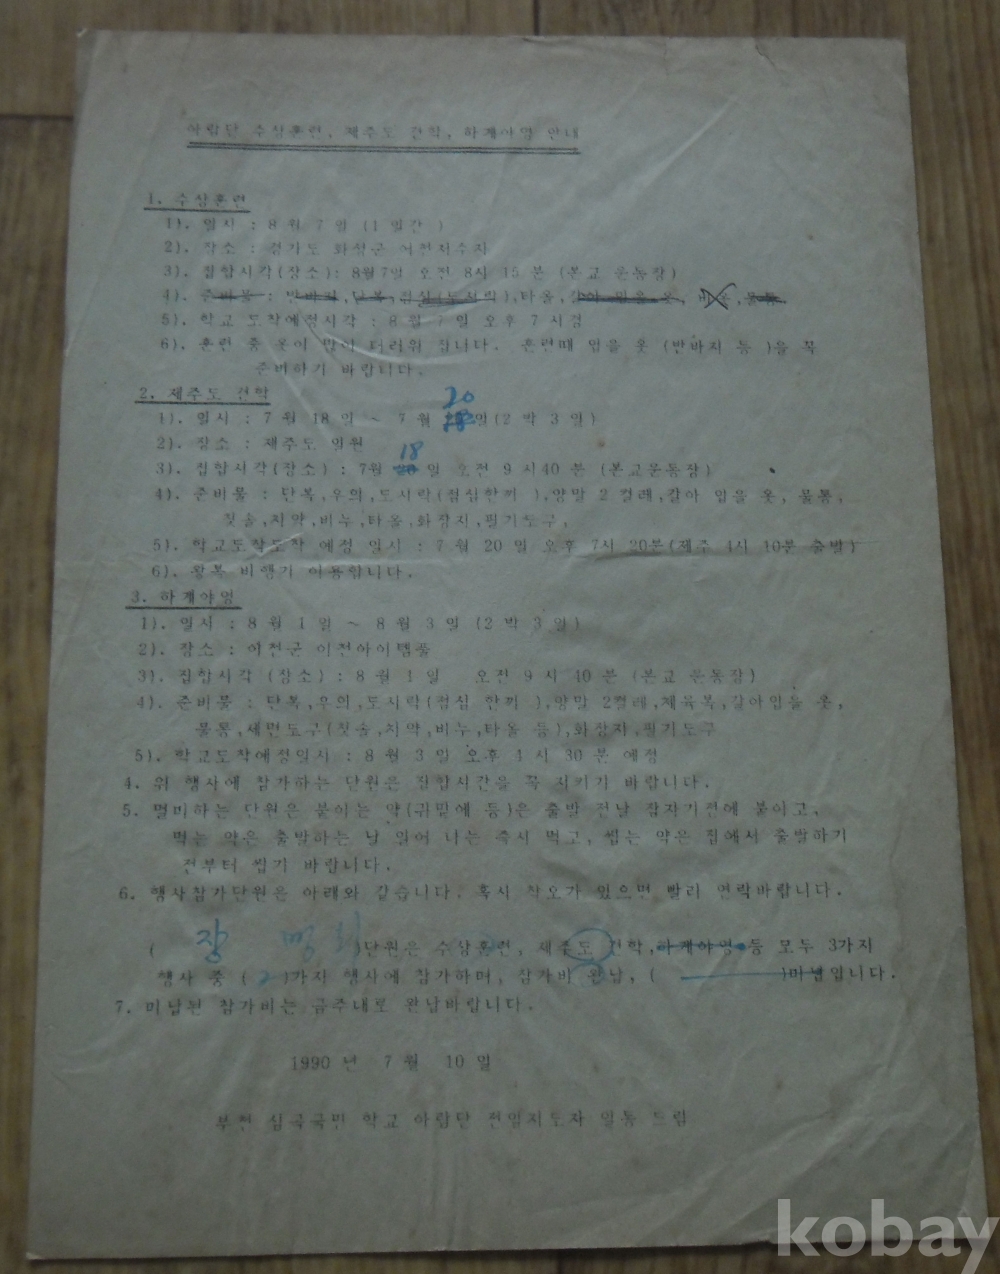 아람단 수상훈련, 제주도 견학, 하계야영 안내
1. 수상훈련
1). 일시 : 8 월 7 일 (1 일간 )
2). 장소 : 경기도 화성군 어천저수지
3). 집합시각(장소): 8월7일 오전 8시 15 분 (본교 운동장)
4). 준비물 : 반바지,단복,점심(도시락),타올,갈아 입을 옷, 비옷,물통,
5). 학교 도착예정시각 : 8 월 7 일 오후 7 시경
6). 훈련 중 옷이 많이 더러워 집니다. 훈련때 입을 옷 (반바지 등 )을 꼭
준비하기 바랍니다.
2. 제주도 견학
20
1). 일시 : 7 월 18 일 ~ 7 월 일(2 박 3 일)
2). 장소 : 제주도 일원
18
3). 집합시각(장소) : 7월 20 일 오전 9 시40 분 (본교운동장)
4). 준비물 : 단복,우의,도시락(점심한끼 ),양말 2 컬레,갈아 입을 옷, 물통,
칫솔,치약,비누,타올,화장지,필기도구,
5). 학교도착도착 예정 일시 : 7 월 20 일 오후 7시 20분(제주 4시 40분 출발)
6). 왕복 비행기 이용합니다.
3. 하계야영
1). 일시 : 8 월 1 일 ~ 8 월 3 일 (2 박 3 일)
2). 장소 : 이천군 이천아이템풀
3). 집합시각 (장소) : 8 월 1 일 오전 9 시 40 분 (본교 운동장)
4). 준비물 : 단복,우의,도시락(점심 한끼 ),양말 2컬레,체육복,갈아입을 옷,
물통,세면도구(칫솔,치약,비누,타올 등),화장지,필기도구
5). 학교도착예정일시 : 8 월 3 일 오후 4 시 30 분 예정
4. 위 행사에 참가하는 단원은 집합시간을 꼭 지키기 바랍니다.
5. 멀미하는 단원은 붙이는 약(귀밑에 등)은 출발 전날 잠자기전에 붙이고,
먹는 약은 출발하는 날 일어 나는 즉시 먹고, 씹는 약은 집에서 출발하기
전부터 씹기 바랍니다.
6. 행사참가단원은 아래와 같습니다. 혹시 착오가 있으면 빨리 연락바랍니다.
( 장 명희 )단원은 수상훈련, 제주도 견학,하계야영 등 모두 3가지
행사 중 ( 2 )가지 행사에 참가하며, 참가비 완납, ( )미납입니다.
7. 미납된 참가비는 금주내로 완납바랍니다.
1990 년 7 월 10 일
부천 심곡국민 학교 아람단 전임지도자 일동 드림
kobay